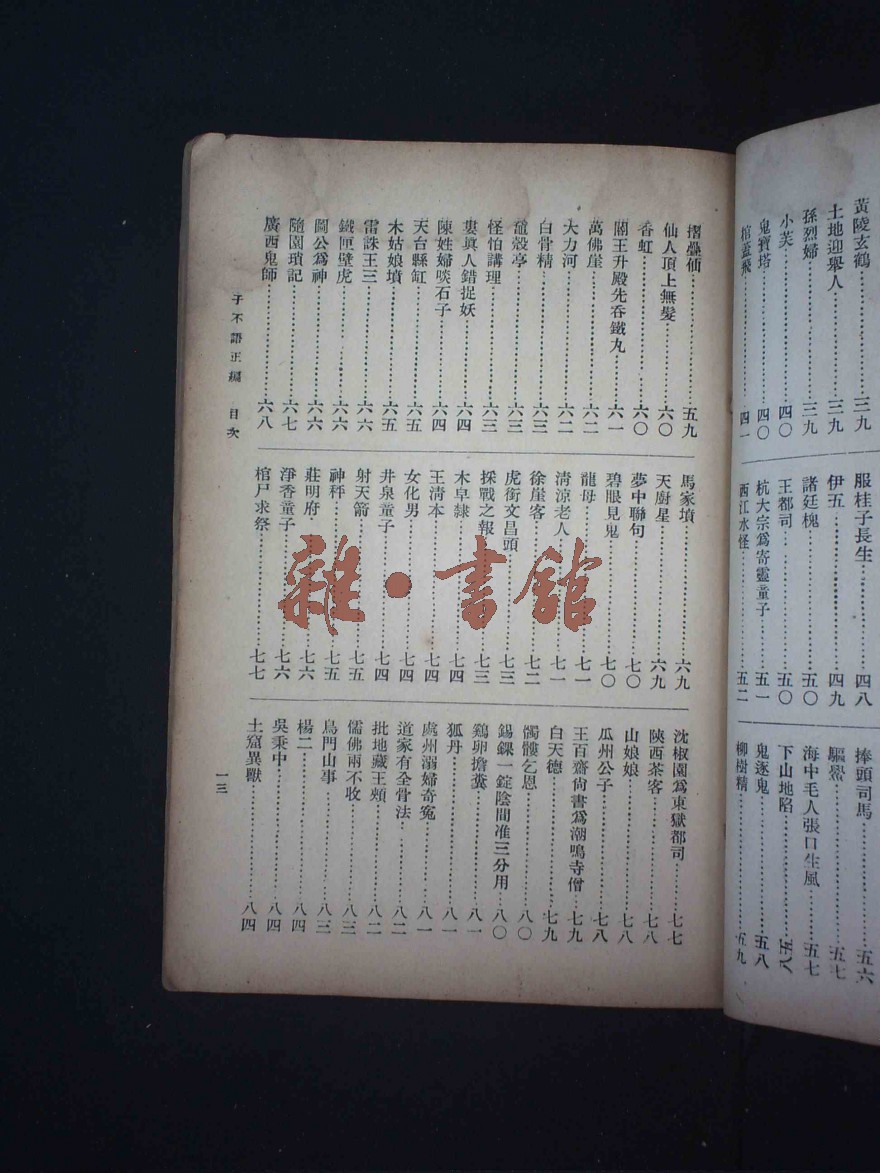 黃陵玄鶴⋯⋯三九
土地迎舉人⋯⋯三九
孫烈婦⋯⋯三九
小芙⋯⋯四〇
鬼寶塔⋯⋯四〇
棺蓋飛⋯⋯四一
服桂子長生⋯⋯四八
伊五⋯⋯四九
諸廷槐⋯⋯五〇
王都司⋯⋯五〇
杭大宗爲寄靈童子⋯⋯五一
西江水怪⋯⋯五二
捧頭司馬⋯⋯五六
驅鱟⋯⋯五七
海中毛人張口生風⋯⋯五七
下山地陷⋯⋯五八
鬼逐鬼⋯⋯五八
柳樹精⋯⋯五九
摺疊仙⋯⋯五九
仙人頂上無髮⋯⋯六〇
香虹⋯⋯六〇
閻王升殿先吞鐵丸⋯⋯六一
萬佛崖⋯⋯六二
大力河⋯⋯六二
白骨精⋯⋯六三
鼈殼亭⋯⋯六三
怪怕講理⋯⋯六三
婁眞人錯捉妖⋯⋯六四
陳姓婦啖石子⋯⋯六四
天台縣缸⋯⋯六五
木姑娘墳⋯⋯六五
雷誅王三⋯⋯六六
鐵匣壁虎⋯⋯六六
圖公爲神⋯⋯六六
隨園瑣記⋯⋯六七
廣西鬼師⋯⋯六八
馬家墳⋯⋯六九
天廚星⋯⋯六九
夢中聯句⋯⋯七〇
碧眼見鬼⋯⋯七〇
龍母⋯⋯七一
清涼老人⋯⋯七一
徐崖客⋯⋯七二
虎銜文昌頭⋯⋯七三
採戰之報⋯⋯七三
木皁隸⋯⋯七四
王清本⋯⋯七四
女化男⋯⋯七四
井泉童子⋯⋯七四
射天箭⋯⋯七五
神秤⋯⋯七五
莊明府⋯⋯七六
淨香童子⋯⋯七六
棺尸求祭⋯⋯七七
沈椒園爲東獄都司⋯⋯七七
陝西茶客⋯⋯七八
山娘娘⋯⋯七八
瓜州公子⋯⋯七八
王百齋尙書爲潮鳴寺僧⋯⋯七九
白天德⋯⋯七九
髑髏乞恩⋯⋯八〇
錫錁一錠陰間准三分用⋯⋯八〇
鷄卵擔糞⋯⋯八一
狐丹⋯⋯八一
處州溺婦奇冤⋯⋯八一
道家有全骨法⋯⋯八二
批地藏王頰⋯⋯八二
儒佛兩不收⋯⋯八三
鳥門山事⋯⋯八三
楊二⋯⋯八四
吳秉中⋯⋯八四
土窟異獸⋯⋯八四
子不語正編 目次
一三
雜·書館